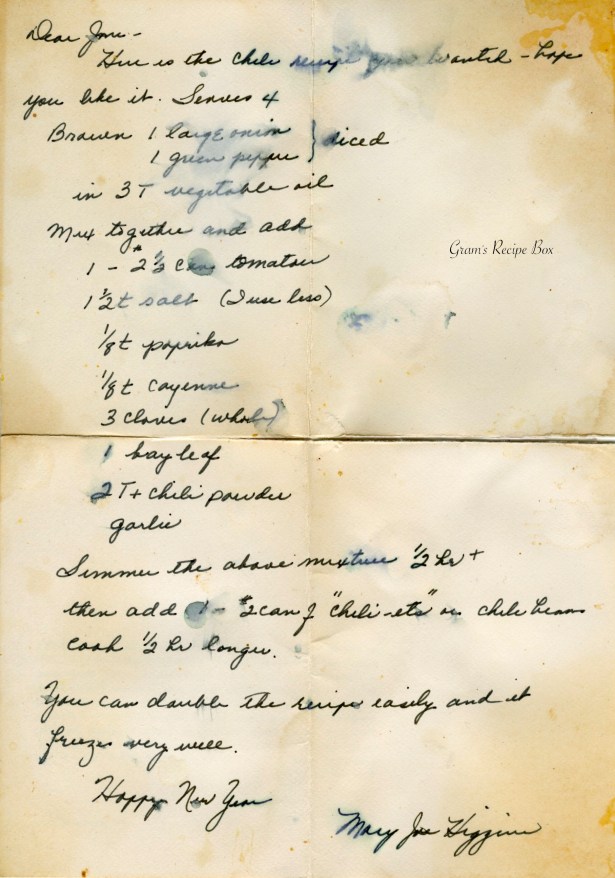 Dear Jone -
Here is the chili recipe you wanted - hope
you like it. Serves 4
Brown 1 large onion } diced
1 green pepper
in 3 T vegetable oil
Mix together and add
1 - #2½ can tomatoes
1½ t salt (I use less)
⅛ t paprika
⅛ t cayenne
3 cloves (whole)
1 bay leaf
2 T + chili powder
garlic
Simmer the above mixture ½ hr +
then add 1 - #2 can of "chili-ets" or chili beans
cook ½ hr longer.
You can double the recipe easily and it
freezes very well.
Happy New Year
Mary Joe Higgins
Gram's Recipe Box